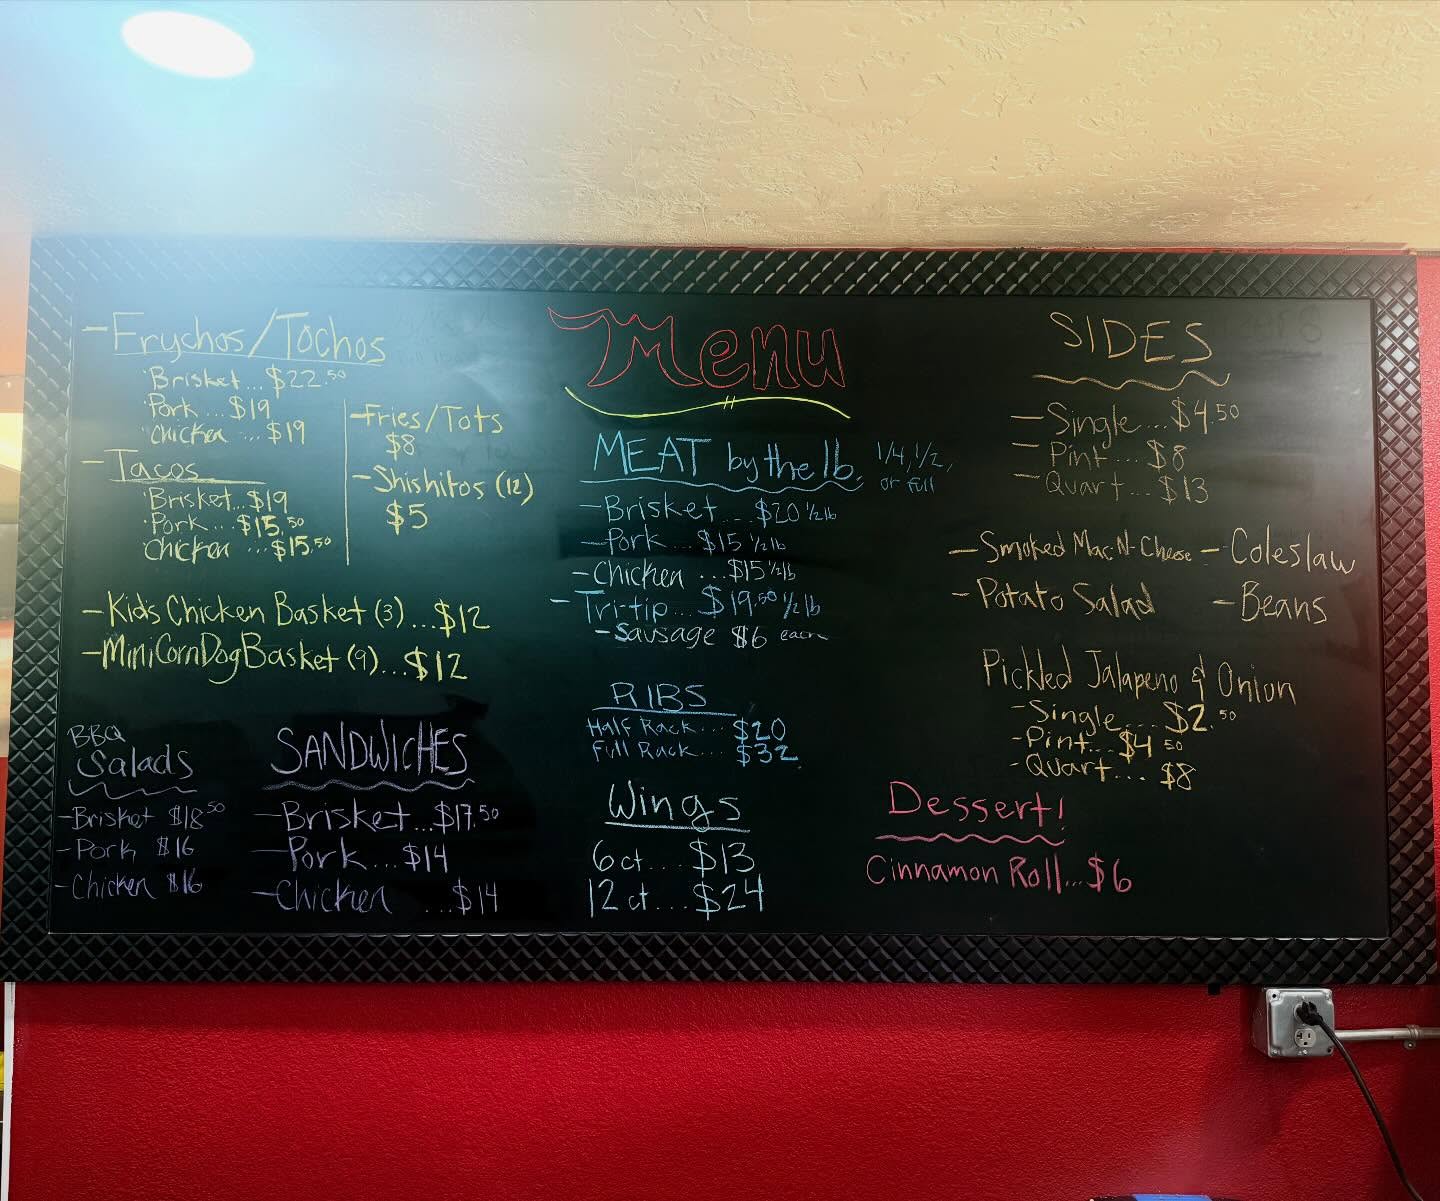 - Frychos/Tochos
Brisket...$22.50
Pork...$19
Chicken...$19
- Tacos
Brisket...$19
Pork...$15.50
Chicken...$15.50
- Fries/Tots
$8
- Shishitos (12)
$5
- Kids Chicken Basket (3)...$12
- Mini Corn Dog Basket (9)...$12
BBQ
Salads
- Brisket $18.50
- Pork $16
- Chicken $16
SANDWICHES
- Brisket...$17.50
- Pork...$14
- Chicken...$14
Menu
MEAT by the lb. 1/4, 1/2,
or full
- Brisket...$20 1/2 lb
- Pork...$15 1/2 lb
- Chicken...$15 1/2 lb
- Tri-tip...$19.50 1/2 lb
- Sausage $6 each
RIBS
Half Rack...$20
Full Rack...$32
Wings
6 ct...$13
12 ct...$24
SIDES
- Single...$4.50
- Pint...$8
- Quart...$13
- Smoked Mac-N-Cheese - Coleslaw
- Potato Salad - Beans
Pickled Jalapeno & Onion
- Single...$2.50
- Pint...$4.50
- Quart...$8
Dessert!
Cinnamon Roll...$6